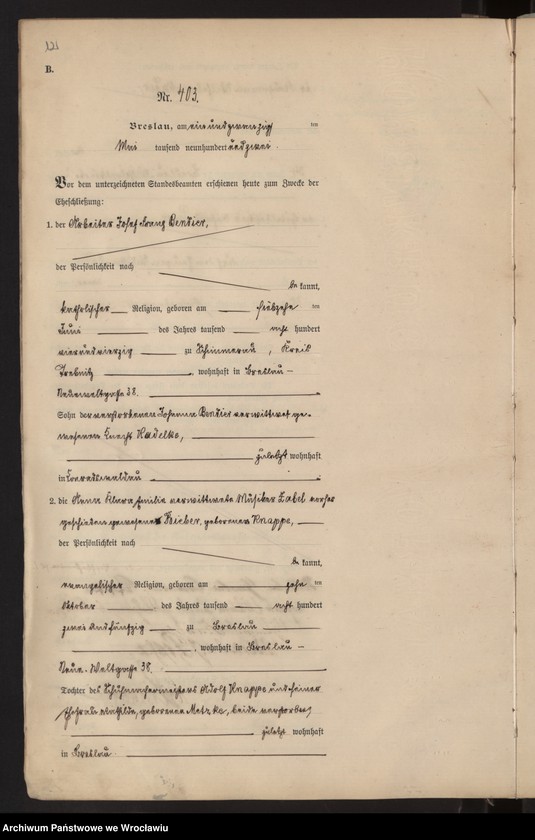 121
B.
Nr. 403.
Breslau, am ein und zwanzig ten
Mai tausend neunhundert und zwei.
Vor dem unterzeichneten Standesbeamten erschienen heute zum Zwecke der
Eheschließung:
1. der Arbeiter Josef Franz Bendier,
der Persönlichkeit nach
be kannt,
katholischer Religion, geboren am siebzehn ten
Juni des Jahres tausend acht hundert
vierundvierzig zu Schimmerau, Kreis
Trebnitz, wohnhaft in Breslau -
Neueweltgasse 38.
Sohn der verstorbenen Johanna Bendier verwittwet ge-
wesenen Knecht Kadelko,
zuletzt wohnhaft
in Conradswaldau
2. die Anna Klara Emilie verwittwete Musiker Zabel vorher
geschieden gewesene Bieber, geborene Knappe,
der Persönlichkeit nach
be kannt,
evangelischer Religion, geboren am zehn ten
Oktober des Jahres tausend acht hundert
zwei und fünfzig zu Breslau
, wohnhaft in Breslau -
Neue Weltgasse 38,
Tochter des Schuhmachermeisters Adolf Knappe und seiner
Ehefrau Mathilde, geborenen Metzko, beide verstorben,
zuletzt wohnhaft
in Breslau
Archiwum Państwowe we Wrocławiu